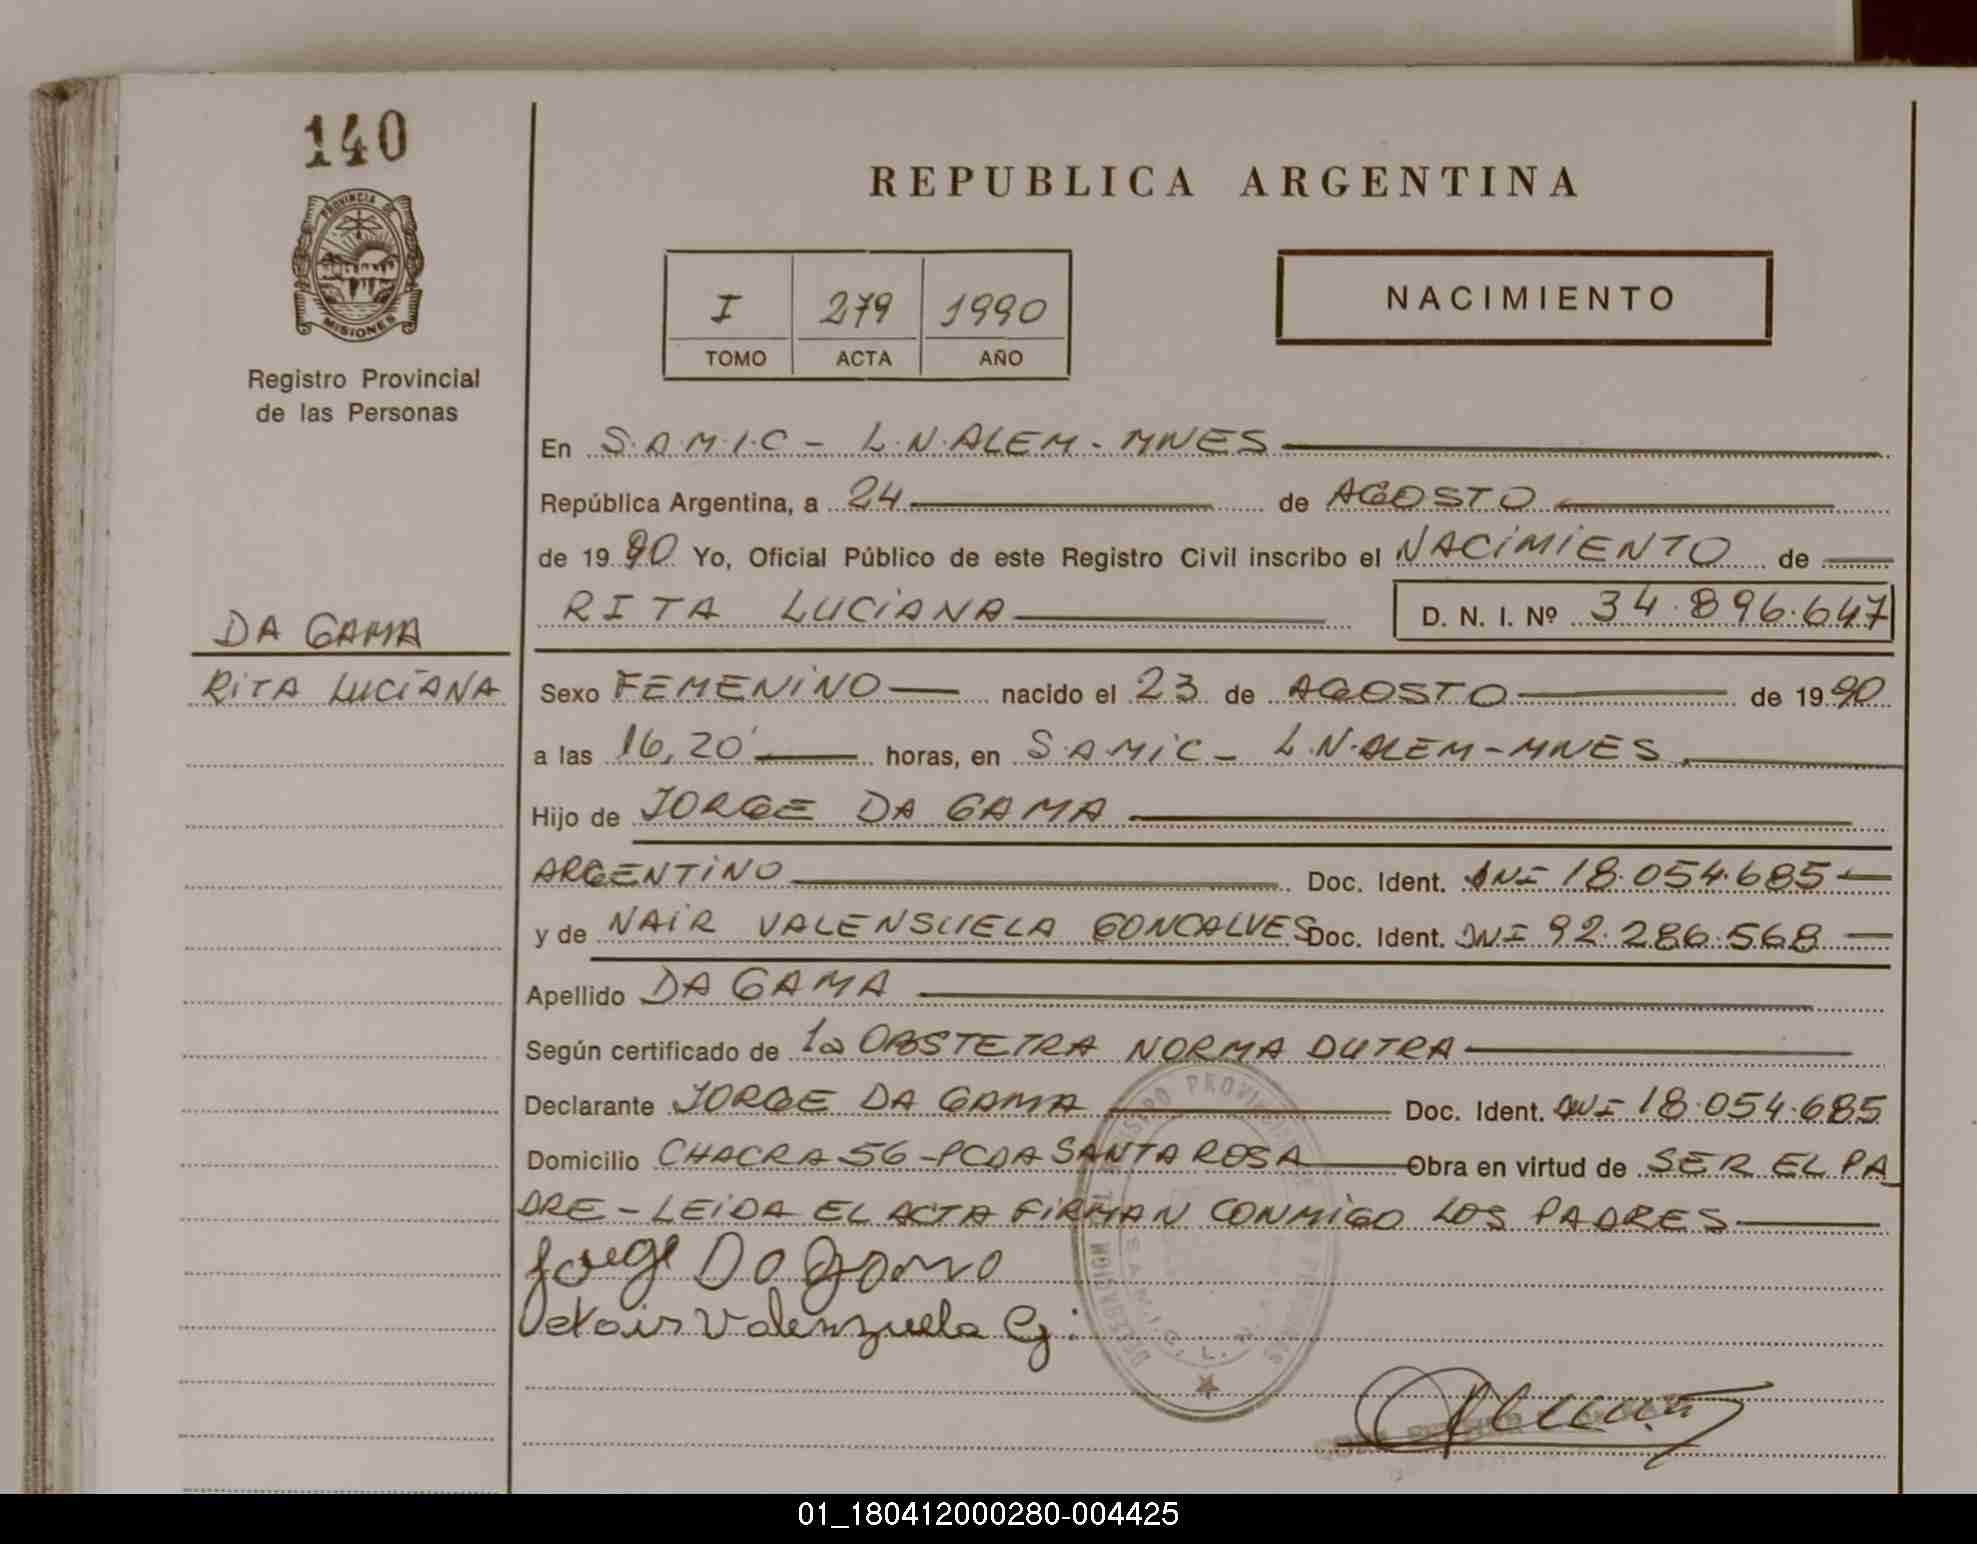 140
PROVINCIA DE
MISIONES
Registro Provincial
de las Personas
DA GAMA
RITA LUCIANA
REPUBLICA ARGENTINA
I 279 1990
TOMO ACTA AÑO
NACIMIENTO
En S.A.M.I.C - L.N.ALEM - MNES
República Argentina, a 24 de AGOSTO
de 19 90 Yo, Oficial Público de este Registro Civil inscribo el NACIMIENTO de
RITA LUCIANA D. N. I. Nº 34.896.647
Sexo FEMENINO nacido el 23 de AGOSTO de 19 90
a las 16,20' horas, en S.A.MIC - L.N.ALEM - MNES
Hijo de JORGE DA GAMA
ARGENTINO Doc. Ident. DNI 18.054.685
y de NAIR VALENSUELA GONCALVES Doc. Ident. DNI 92.286.568
Apellido DA GAMA
Según certificado de la OBSTETRA NORMA DUTRA
Declarante JORGE DA GAMA Doc. Ident. DNI 18.054.685
Domicilio CHACRA 56 - PCDA SANTA ROSA Obra en virtud de SER EL PA
DRE - LEIDA EL ACTA FIRMAN CONMIGO LOS PADRES
Jorge Da Gama
Valenzuela G.
01_180412000280-004425